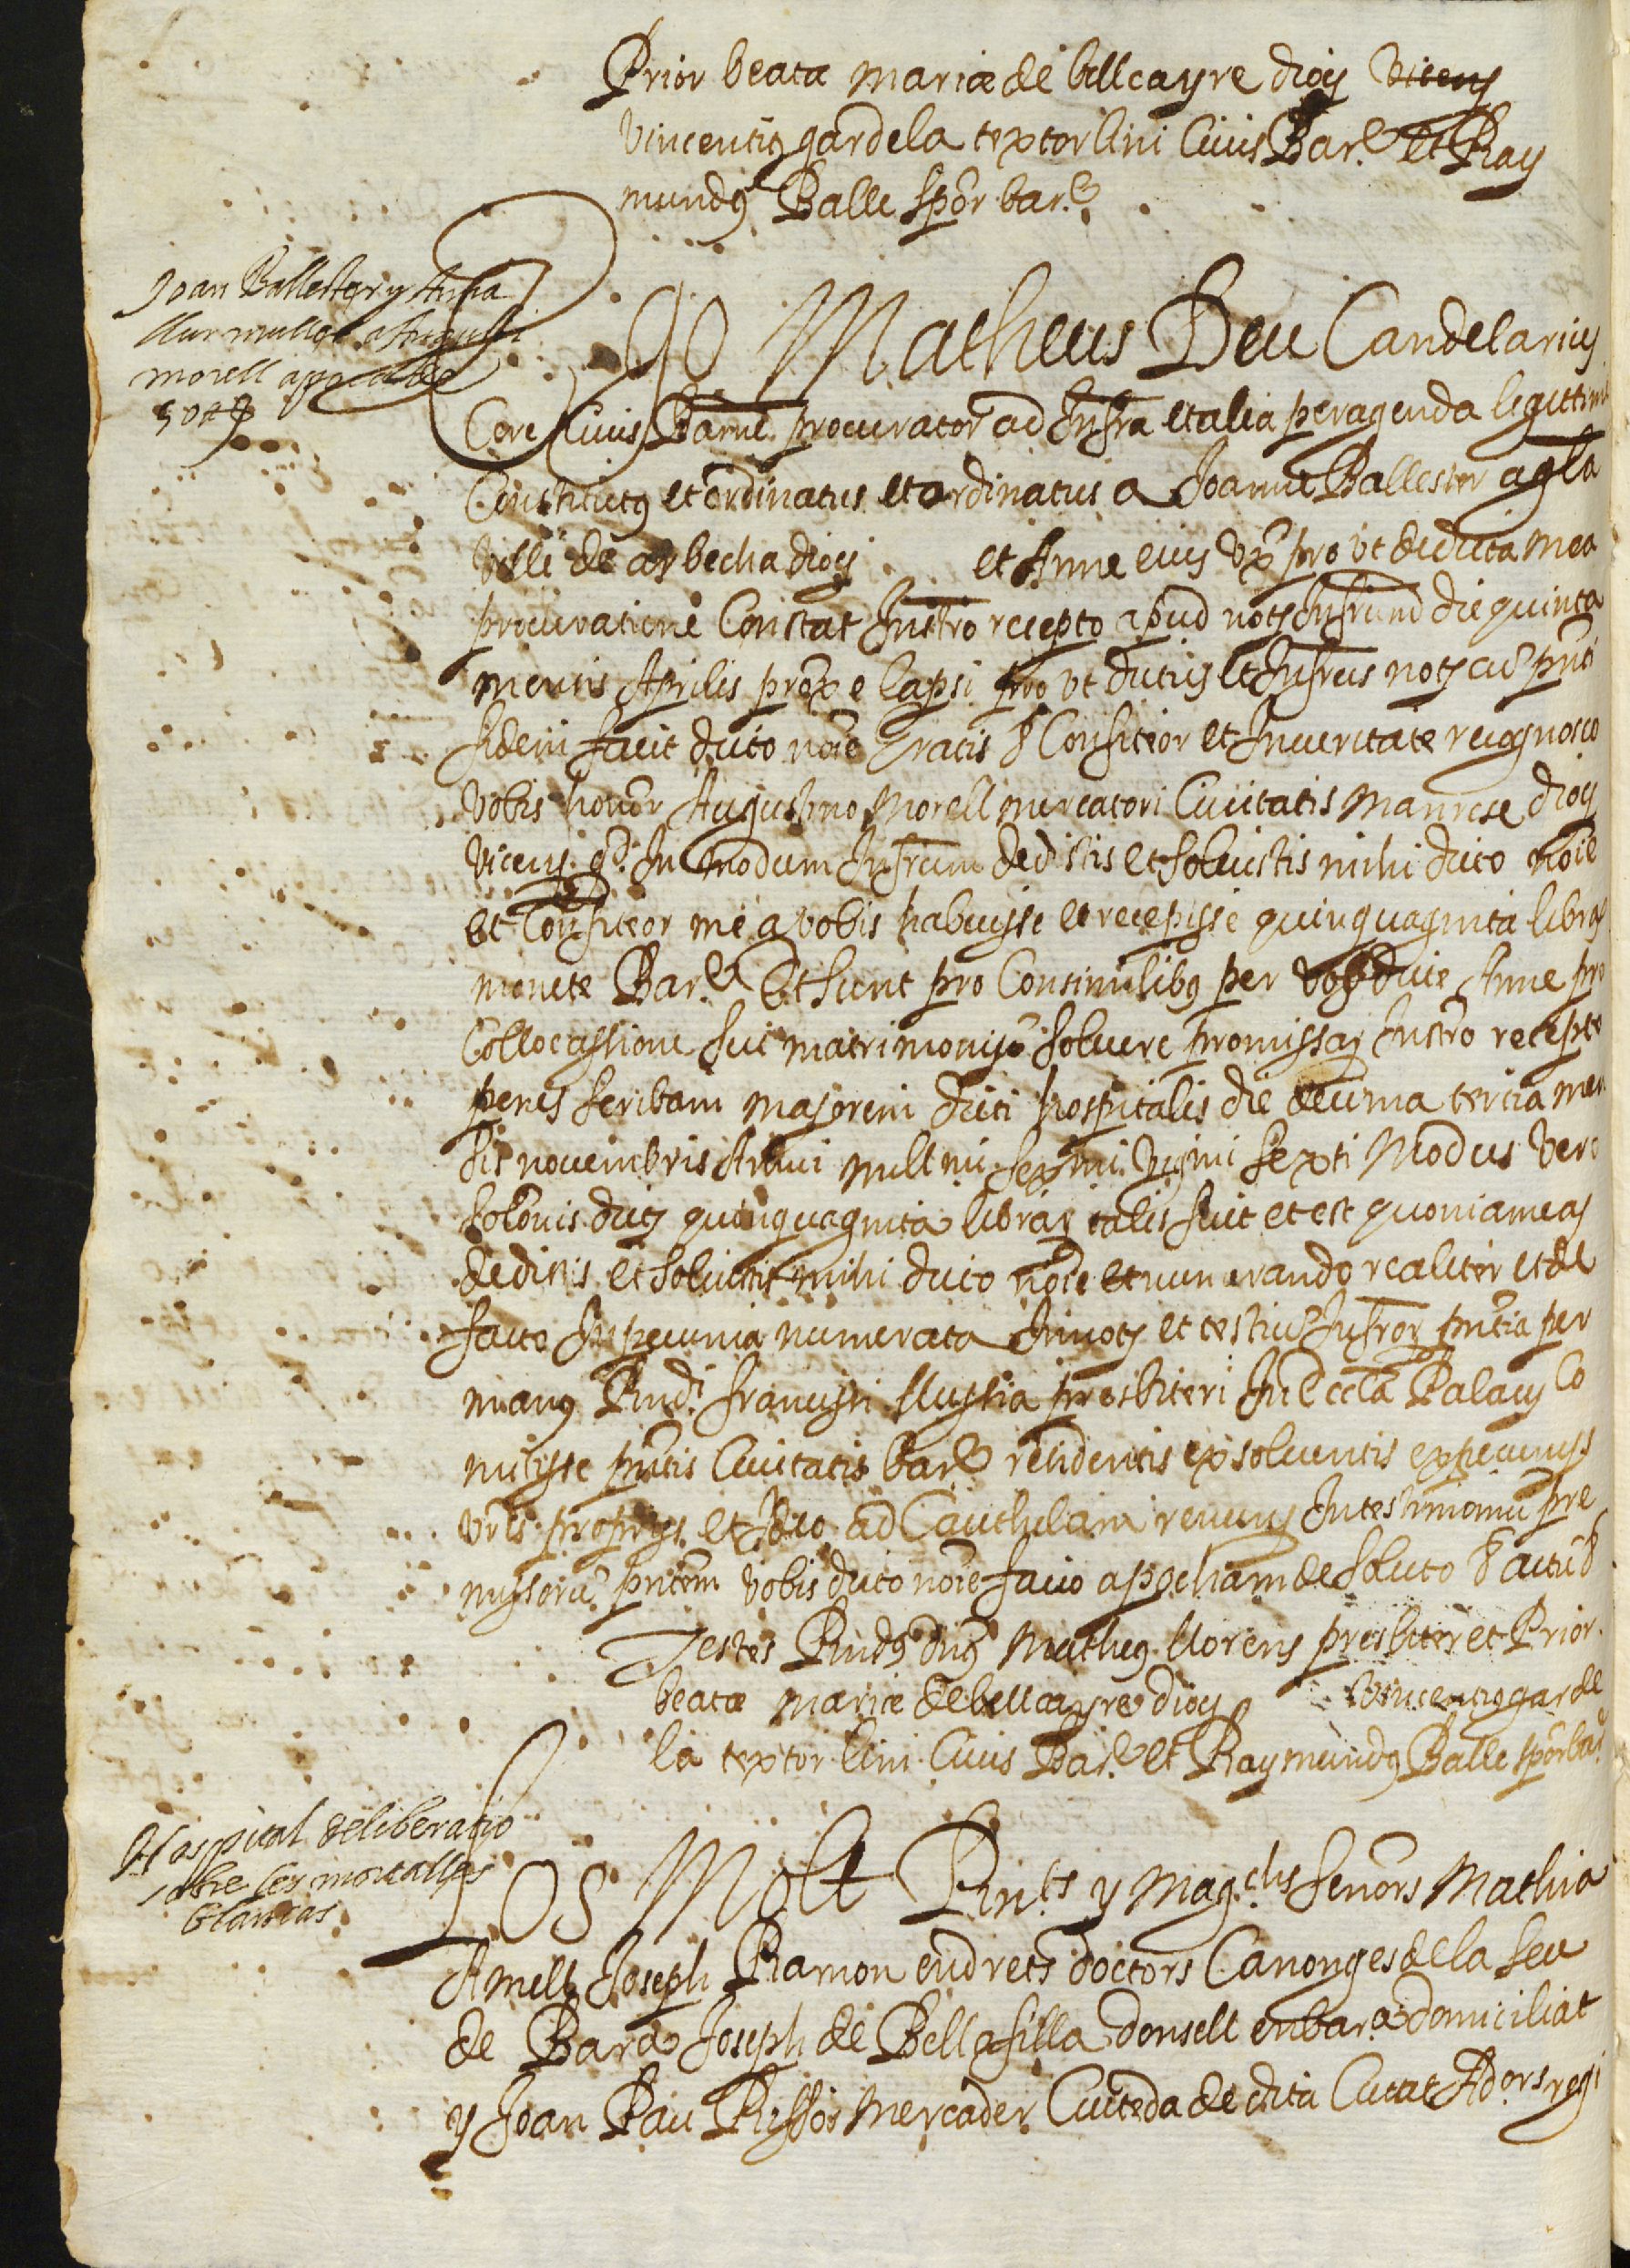 Prior beatæ Mariæ de bellcayre diocs Vicens
Vincentius gardela textor lini Civis Bar.e et Ray
mundus Balle spor bar.e
Joan Ballester y Anna
sa muller a Augusti
morell apoca de
50 ll
Ego Matheus Deu Candelarius
Cere Civis Barne. procurator ad Infra et alia peragenda legittime
Constitutus et ordinatus et ordinatus a Joanne Ballester agla
ville de arbecha diocs et Anne eius vxo pro vt de dicta mea
procuratione Constat Instro recepto apud nots Infrum die quinta
mensis Aprilis prox e lapsi pro vt dictus et Infrus nots cū pnti
fidem facit dicto noie Gratis & Confiteor et In veritate recognosco
vobis honor Augustino Morell mercatori Civitatis Manrese diocs
Vicens. qd. In modum Infrum dedistis et solvistis mihi dicto noie
et Confiteor me a vobis habuisse et recepisse quinquaginta libras
monete Bar.e Et sunt pro Consimilibus per vos dicte Anne pro
Collocassione sui matrimonij solvere promissas Instro recepto
penes scribam majorem dicti hospitalis die decima tercia men
sis novembris Anni mill mi. sex mi. vigmi sexti Modus vero
solonis dicts quinquaginta librar talis fuit et est quoniam eas
dedistis et solvistis mihi dicto noie et numerando realiter et de
facto In pecunia numerata In nots et testiū Infror pntia per
manus Rndi. francisci presbiteri In Eccla Palacij Co
mitisse pntis Civitatis bar.e residentis ex solventis ex pecunijs
vris proprijs. et Ideo ad Cauthelam In testimoniū pre
missorū pntem vobis dicto noie facio apocham de soluto & actū &
Testes Rndus dns Matheus llorens presbiter et Prior
beatæ marie de bellcayre diocs Vincentius garde
la textor lini Civis Bar.e et Raymundus Balle spor bar.e
Hospital deliberatio
sobre les mortalles
blancas
Los Molt Rnts y Mag.chs senors Mathia
Amell Joseph Ramon doctors Canonges de la Seu
de Bar.a Joseph de Bellafilla donsell en bar.a domiciliat
y Joan Pau Riffos Mercader Ciuteda de dita Ciutat Ad.ors regi